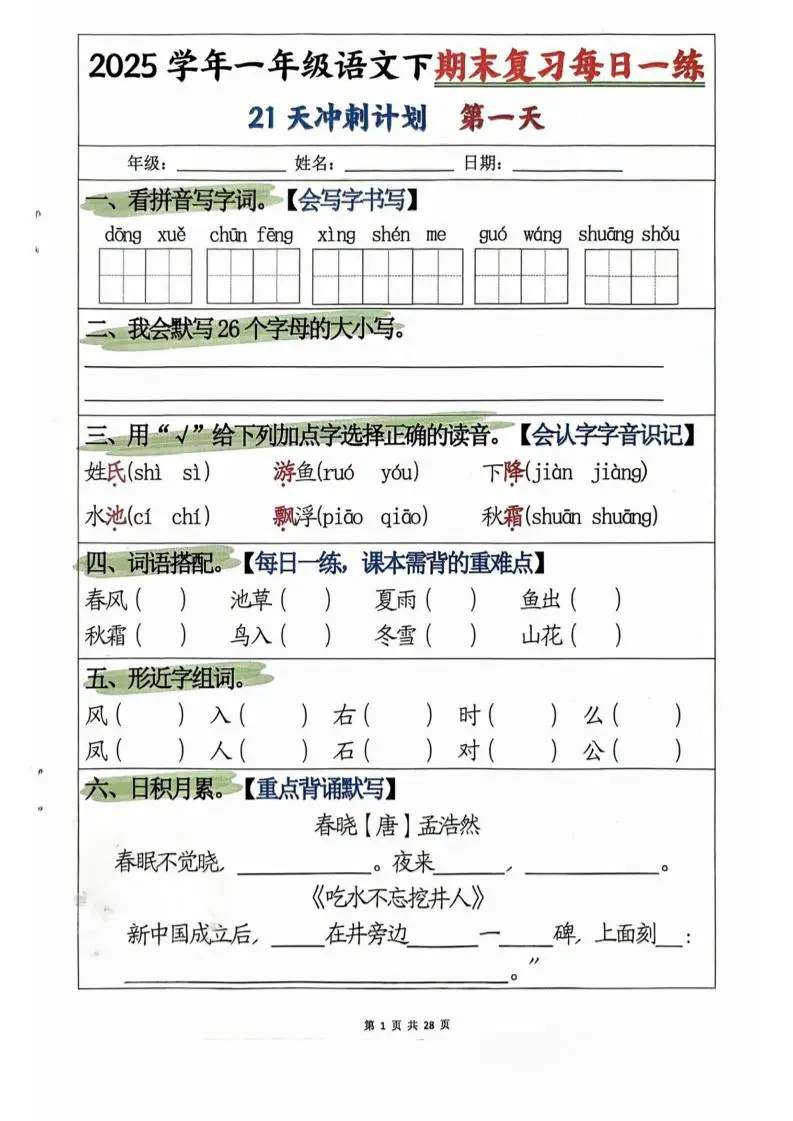 2025 学年一年级语文下期末复习每日一练
21 天冲刺计划 第一天
年级：__________ 姓名：__________ 日期：__________
一、看拼音写字词。【会写字书写】
dōng xuě chūn fēng xìng shén me guó wáng shuāng shǒu
二、我会默写 26 个字母的大小写。
三、用“√”给下列加点字选择正确的读音。【会认字字音识记】
姓氏(shì sì) 游鱼(ruó yóu) 下降(jiàn jiàng)
水池(cí chí) 飘浮(piāo qiāo) 秋霜(shuān shuāng)
四、词语搭配。【每日一练，课本需背的重难点】
春风（ ） 池草（ ） 夏雨（ ） 鱼出（ ）
秋霜（ ） 鸟入（ ） 冬雪（ ） 山花（ ）
五、形近字组词。
风（ ） 入（ ） 右（ ） 时（ ） 么（ ）
凤（ ） 人（ ） 石（ ） 对（ ） 公（ ）
六、日积月累。【重点背诵默写】
春晓【唐】孟浩然
春眠不觉晓，__________。夜来______，__________。
《吃水不忘挖井人》
新中国成立后，____在井旁边_____一____碑，上面刻__：
______________________________。”
第 1 页 共 28 页